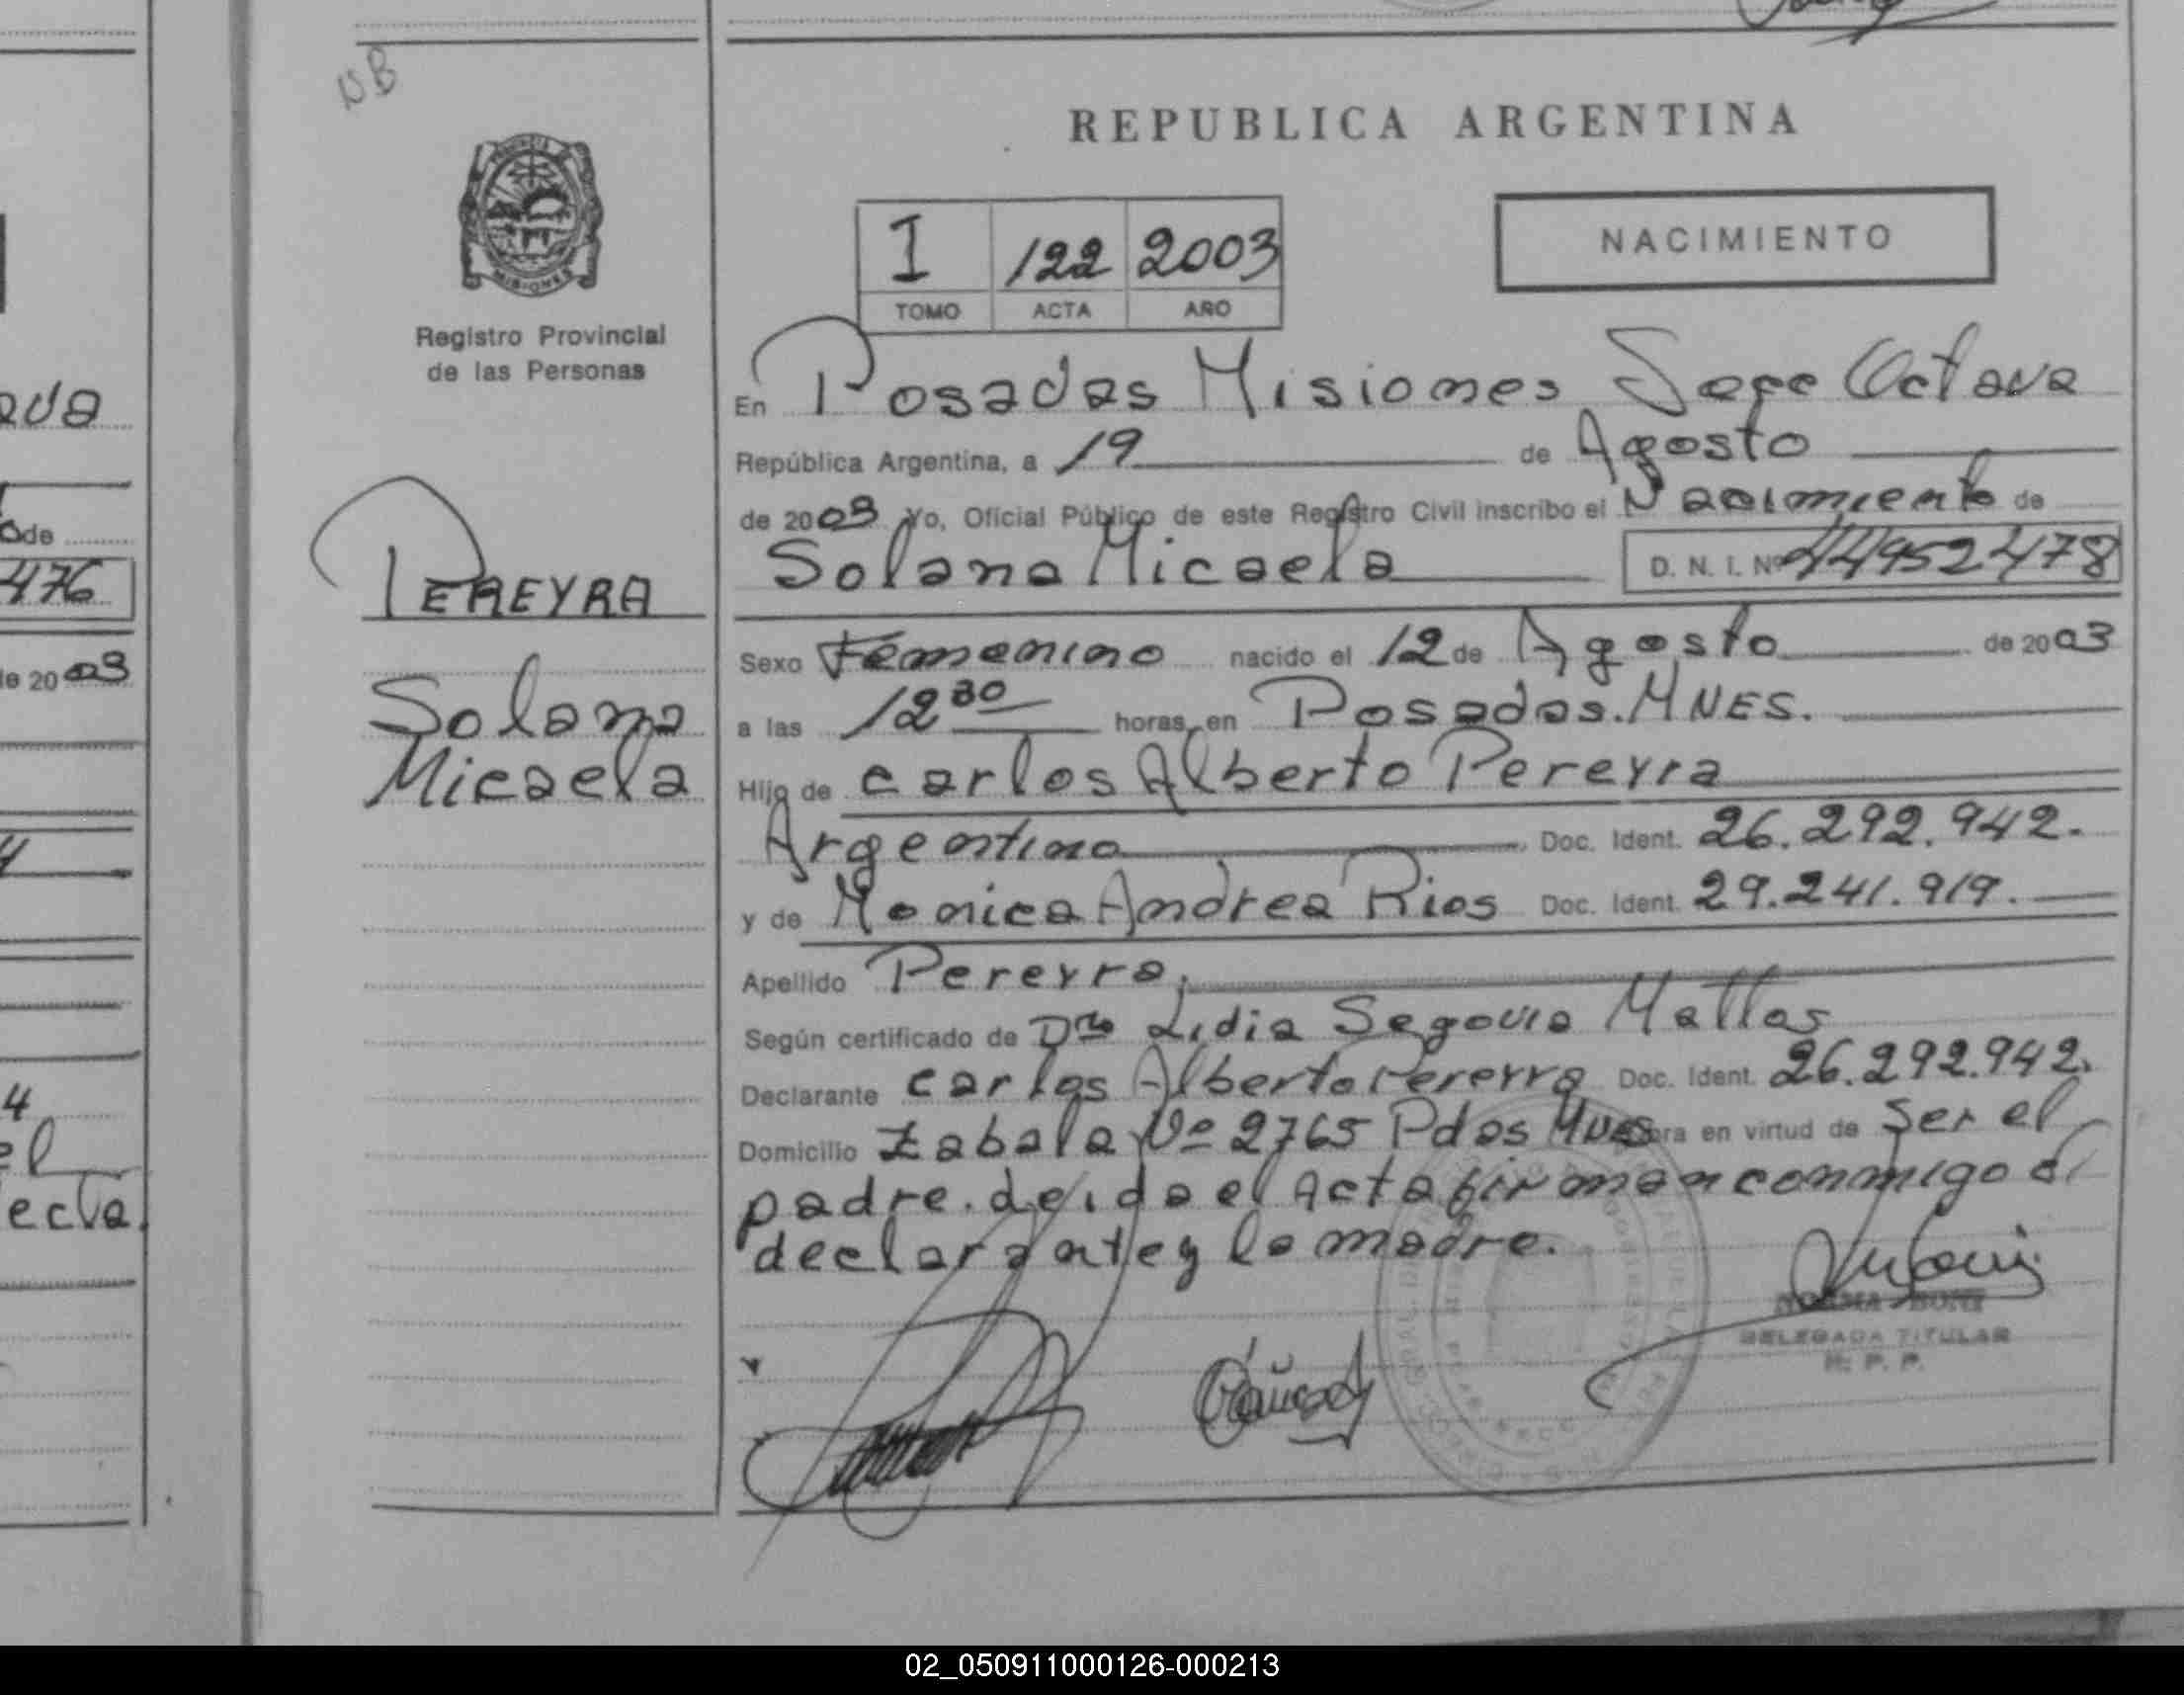 NB
REPUBLICA ARGENTINA
PROVINCIA DE
MISIONES
Registro Provincial
de las Personas
I 122 2003
TOMO ACTA AÑO
NACIMIENTO
En Posadas Misiones Secc Octava
República Argentina, a 19 de Agosto
de 2003 Yo, Oficial Público de este Registro Civil inscribo el Nacimiento de
Solana Micaela D. N. I. Nº 44952478
PEREYRA
Solana
Micaela
Sexo Femenino nacido el 12 de Agosto de 2003
a las 12 30 horas, en Posadas. MNES.
Hijo de Carlos Alberto Pereyra
Argentino Doc. Ident. 26.292.942.
y de Monica Andrea Rios Doc. Ident. 29.241.919.
Apellido Pereyra.
Según certificado de Dra Lidia Segovia Mattos
Declarante Carlos Alberto Pereyra Doc. Ident. 26.292.942.
Domicilio Zabala Nº 2765 Pdas Mnes obra en virtud de ser el
padre. Leida el Acta firman conmigo el
declarante y la madre.
NORMA
DELEGADA TITULAR
R. P. P.
ada
de
476
de 2003
4
el
ecta
02_050911000126-000213